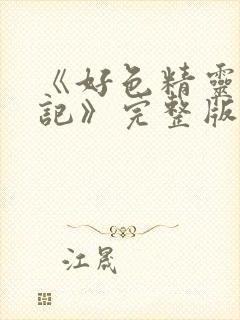 《好色精靈
記》完整版
江晟